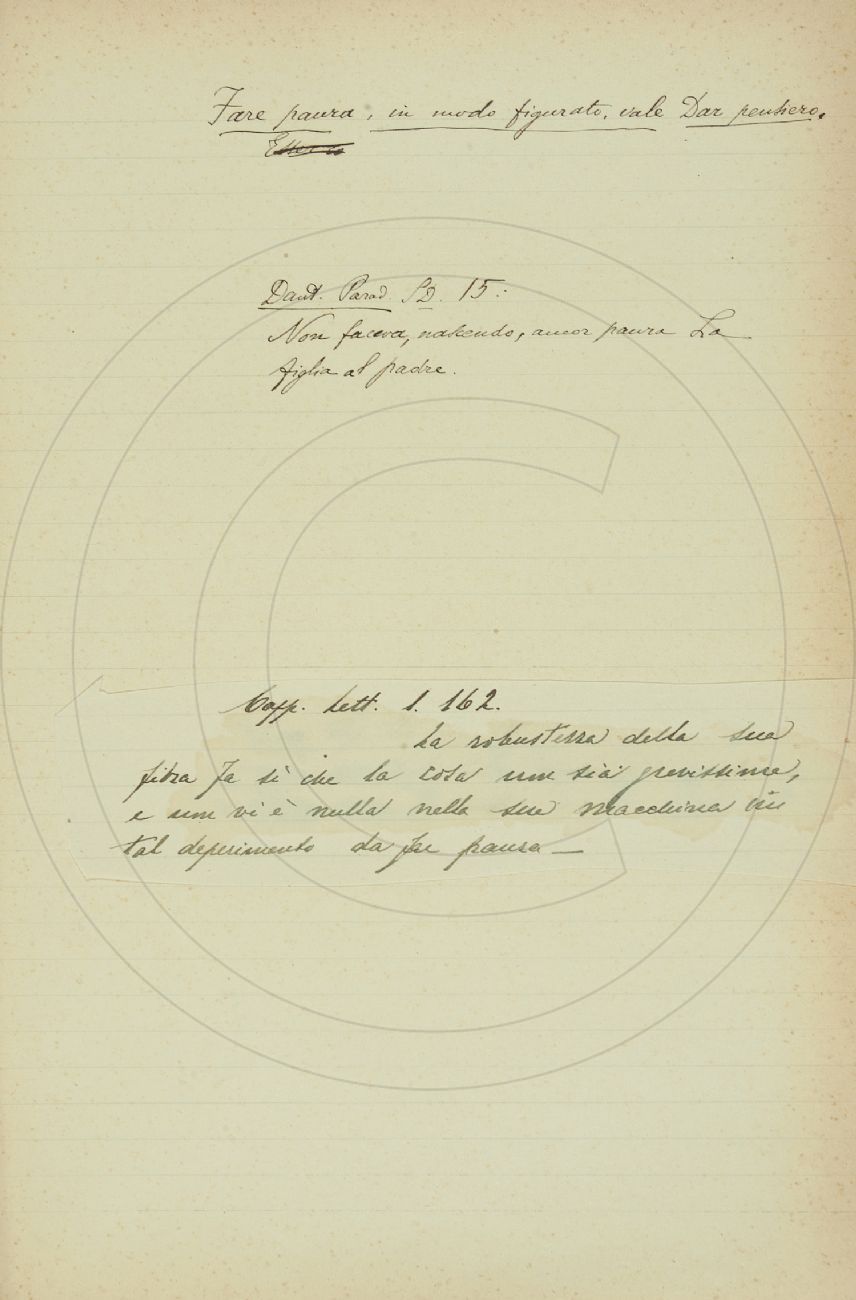 Fare paura, in modo figurato, vale Dar pensiero.
Dant. Parad. 15:
Non faceva, nascendo, ancor paura La
figlia al padre.
Capp. Lett. 1. 162.
La robustezza della sua
fibra fa sì che la cosa non sia gravissima,
e non vi è nulla nella sua macchina in
tal deperimento da far paura —